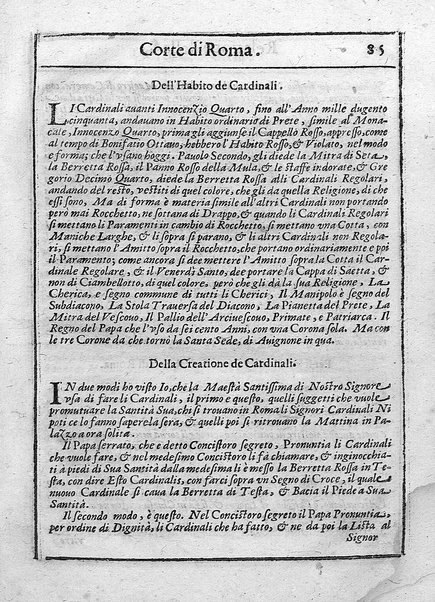 Corte di Roma. 85
Dell'Habito de Cardinali.
LI Cardinali auanti Innocenzio Quarto, fino all'Anno mille dugento
cinquanta, andauano in Habito ordinario di Prete, simile al Mona-
cale, Innocenzo Quarto, prima gli aggiunse il Cappello Rosso, appresso, come
al tempo di Bonifatio Ottauo, hebbero l'Habito Rosso, & Violato, nel modo
e forma; che l'vsano hoggi. Pauolo Secondo, gli diede la Mitra di Seta,
la Berretta Rossa, il Panno Rosso della Mula, & le staffe indorate, & Gre
gorio Decimo Quarto, diede la Berretta Rossa alli Cardinali Regolari,
andando del resto, vestiti di quel colore, che gli da quella Religione, di che
essi sono, Ma di forma è materia simile all'altri Cardinali non portando
però mai Rocchetto, ne sottana di Drappo, & quando li Cardinali Regolari
si mettano li Paramenti in cambio di Rocchetto, si mettano vna Cotta, con
Maniche Larghe, & li sopra si parano, & li altri Cardinali non Regola-
ri, si mettano l'Amitto sopra il Rocchetto, che portano ordinariamente e poi
il Paramento; come ancora si dee mettere l'Amitto sopra la Cotta il Car-
dinale Regolare, & il Venerdì Santo, dee portare la Cappa di Saetta, &
non di Ciambellotto, di quel colore, però che gli da la sua Religione, La
Cherica, e segno commune di tutti li Cherici, Il Manipolo è segno del
Subdiacono, La Stola Trauersa del Diacono, La Pianetta del Prete, La
Mitra del Vescouo, Il Pallio dell'Arciuescouo, Primate, e Patriarca. Il
Regno del Papa che l'vsò da sei cento Anni, con vna Corona sola. Ma con
le tre Corone da che tornò la Santa Sede, di Auignone in qua.
Della Creatione de Cardinali.
IN due modi ho visto Io, che la Maestà Santissima di Nostro Signore
vsa di fare li Cardinali, il primo e questo, quelli suggetti che vuole
promutuare la Santità Sua, chi si trouano in Roma li Signori Cardinali Ni
poti ce lo fanno sapere la sera, & quelli poi si ritrouano la Mattina in Pa-
lazzo a ora solita.
Il Papa serrato, che e detto Concistoro segreto, Pronuntia li Cardinali
che vuole fare, & nel medesimo Concistoro li fà chiamare, & inginocchia-
ti à piedi di Sua Santità dalla medesima li è messo la Berretta Rossa in Te-
sta, con dire Esto Cardinalis, con farci sopra vn Segno di Croce, il quale
nuouo Cardinale si caua la Berretta di Testa, & Bacia il Piede a Sua
Santità.
Il secondo modo, è questo. Nel Concistoro segreto il Papa Pronuntia,
per ordine di Dignità, li Cardinali che ha fatto, & ne da poi la Lista al
Signor